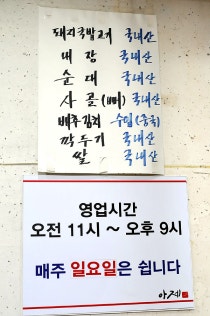 돼지국밥고기 국내산
내장 국내산
순대 국내산
사골(뼈) 국내산
배추김치 수입(중국)
깍두기 국내산
쌀 국내산
영업시간
오전 11시 ~ 오후 9시
매주 일요일은 쉽니다
아제